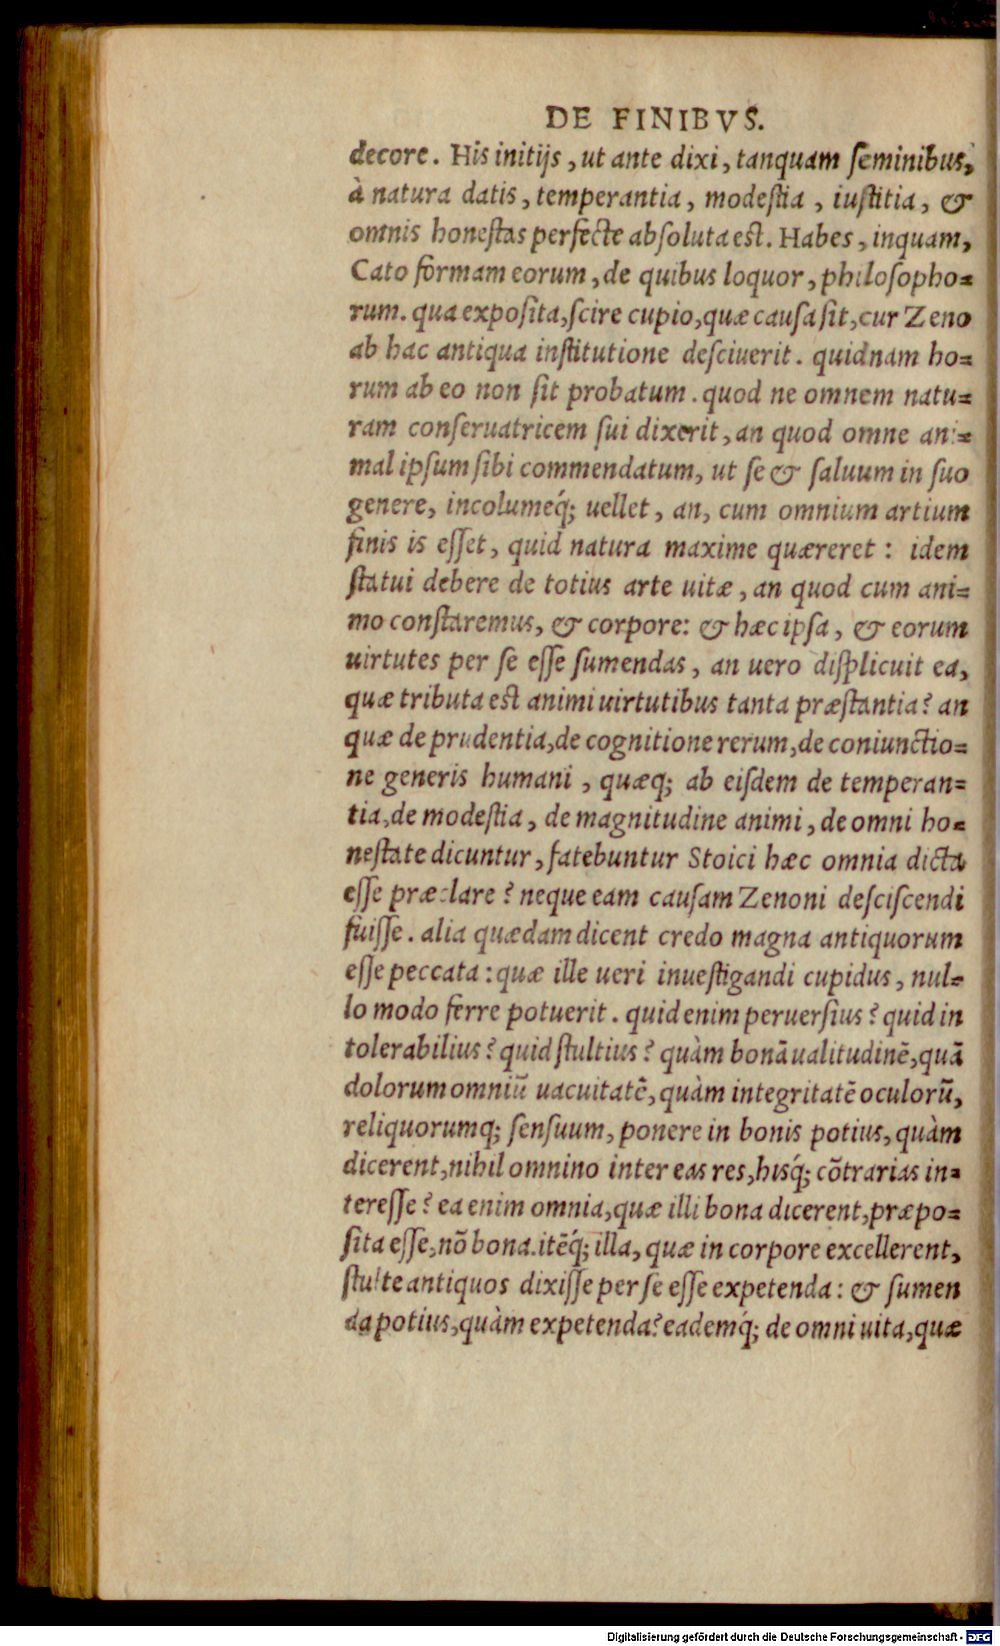 DE FINIBVS.
decore. His initijs, ut ante dixi, tanquam ſeminibus,
à natura datis, temperantia, modeſtia, iuſtitia, &
omnis honeſtas perfecte abſoluta est. Habes, inquam,
Cato formam eorum, de quibus loquor, philoſopho=
rum. qua expoſita, ſcire cupio, quæ cauſa ſit, cur Zeno
ab hac antiqua inſtitutione deſciuerit. quidnam ho=
rum ab eo non ſit probatum. quod ne omnem natu=
ram conſeruatricem ſui dixerit, an quod omne ani=
mal ipſum ſibi commendatum, ut ſe & ſaluum in ſuo
genere, incolumeq́; uellet, an, cum omnium artium
finis is eſſet, quid natura maxime quæreret: idem
ſtatui debere de totius arte uitæ, an quod cum ani=
mo conſtaremus, & corpore: & hæc ipſa, & eorum
uirtutes per ſe eſſe ſumendas, an uero diſplicuit ea,
quæ tributa est animi uirtutibus tanta præſtantia? an
quæ de prudentia, de cognitione rerum, de coniunctio=
ne generis humani, quæq; ab eiſdem de temperan=
tia, de modeſtia, de magnitudine animi, de omni ho=
neſtate dicuntur, fatebuntur Stoici hæc omnia dicta
eſſe præclare? neque eam cauſam Zenoni deſciſcendi
fuiſſe. alia quædam dicent credo magna antiquorum
eſſe peccata: quæ ille ueri inueſtigandi cupidus, nul=
lo modo ferre potuerit. quid enim peruerſius? quid in
tolerabilius? quid ſtultius? quàm bonā ualitudinē, quā
dolorum omniū uacuitatē, quàm integritatē oculorū,
reliquorumq; ſenſuum, ponere in bonis potius, quàm
dicerent, nihil omnino inter eas res, hisq́; cōtrarias in=
tereſſe? ea enim omnia, quæ illi bona dicerent, præpo=
ſita eſſe, nō bona. itēq́; illa, quæ in corpore excellerent,
ſtulte antiquos dixiſſe per ſe eſſe expetenda: & ſumen
da potius, quàm expetenda? eademq́; de omni uita, quæ
Digitalisierung gefördert durch die Deutsche Forschungsgemeinschaft - DFG